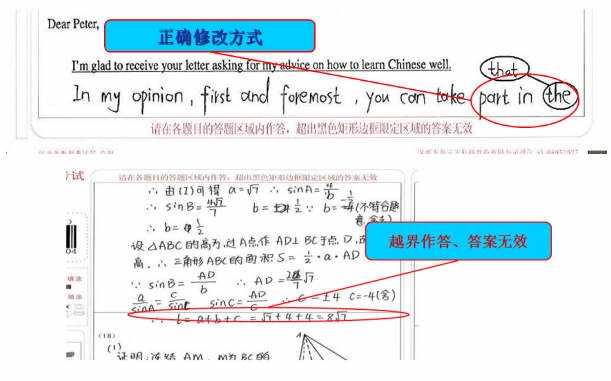 Dear Peter,
正确修改方式
I'm glad to receive your letter asking for my advice on how to learn Chinese well.
that
In my opinion, first and foremost, you can take part in the
请在各题目的答题区域内作答，超出黑色矩形边框限定区域的答案无效
考试
请在各题目的答题区域内作答，超出黑色矩形边框限定区域的答案无效
∴ 由(1)可得 a=√7 ∴ sinA=
∴ sinB= 4√7/7 b= 1/2 ∵ b= (不符合题
∴ b= 1/2
设△ABC的高为,过A点作AD⊥BC于点D,
越界作答、答案无效
高,∴三角形ABC的面积S=1/2·a·AD
∵ sinB= AD/b ∴ AD=
04
a/sinA = c/sinC sinC= AD/c ∴ c=±4 c=-4(舍)
∴ l=a+b+c=√7+4+4=8√7
(18)
(1)
A
证明:连结AM, M为BC的